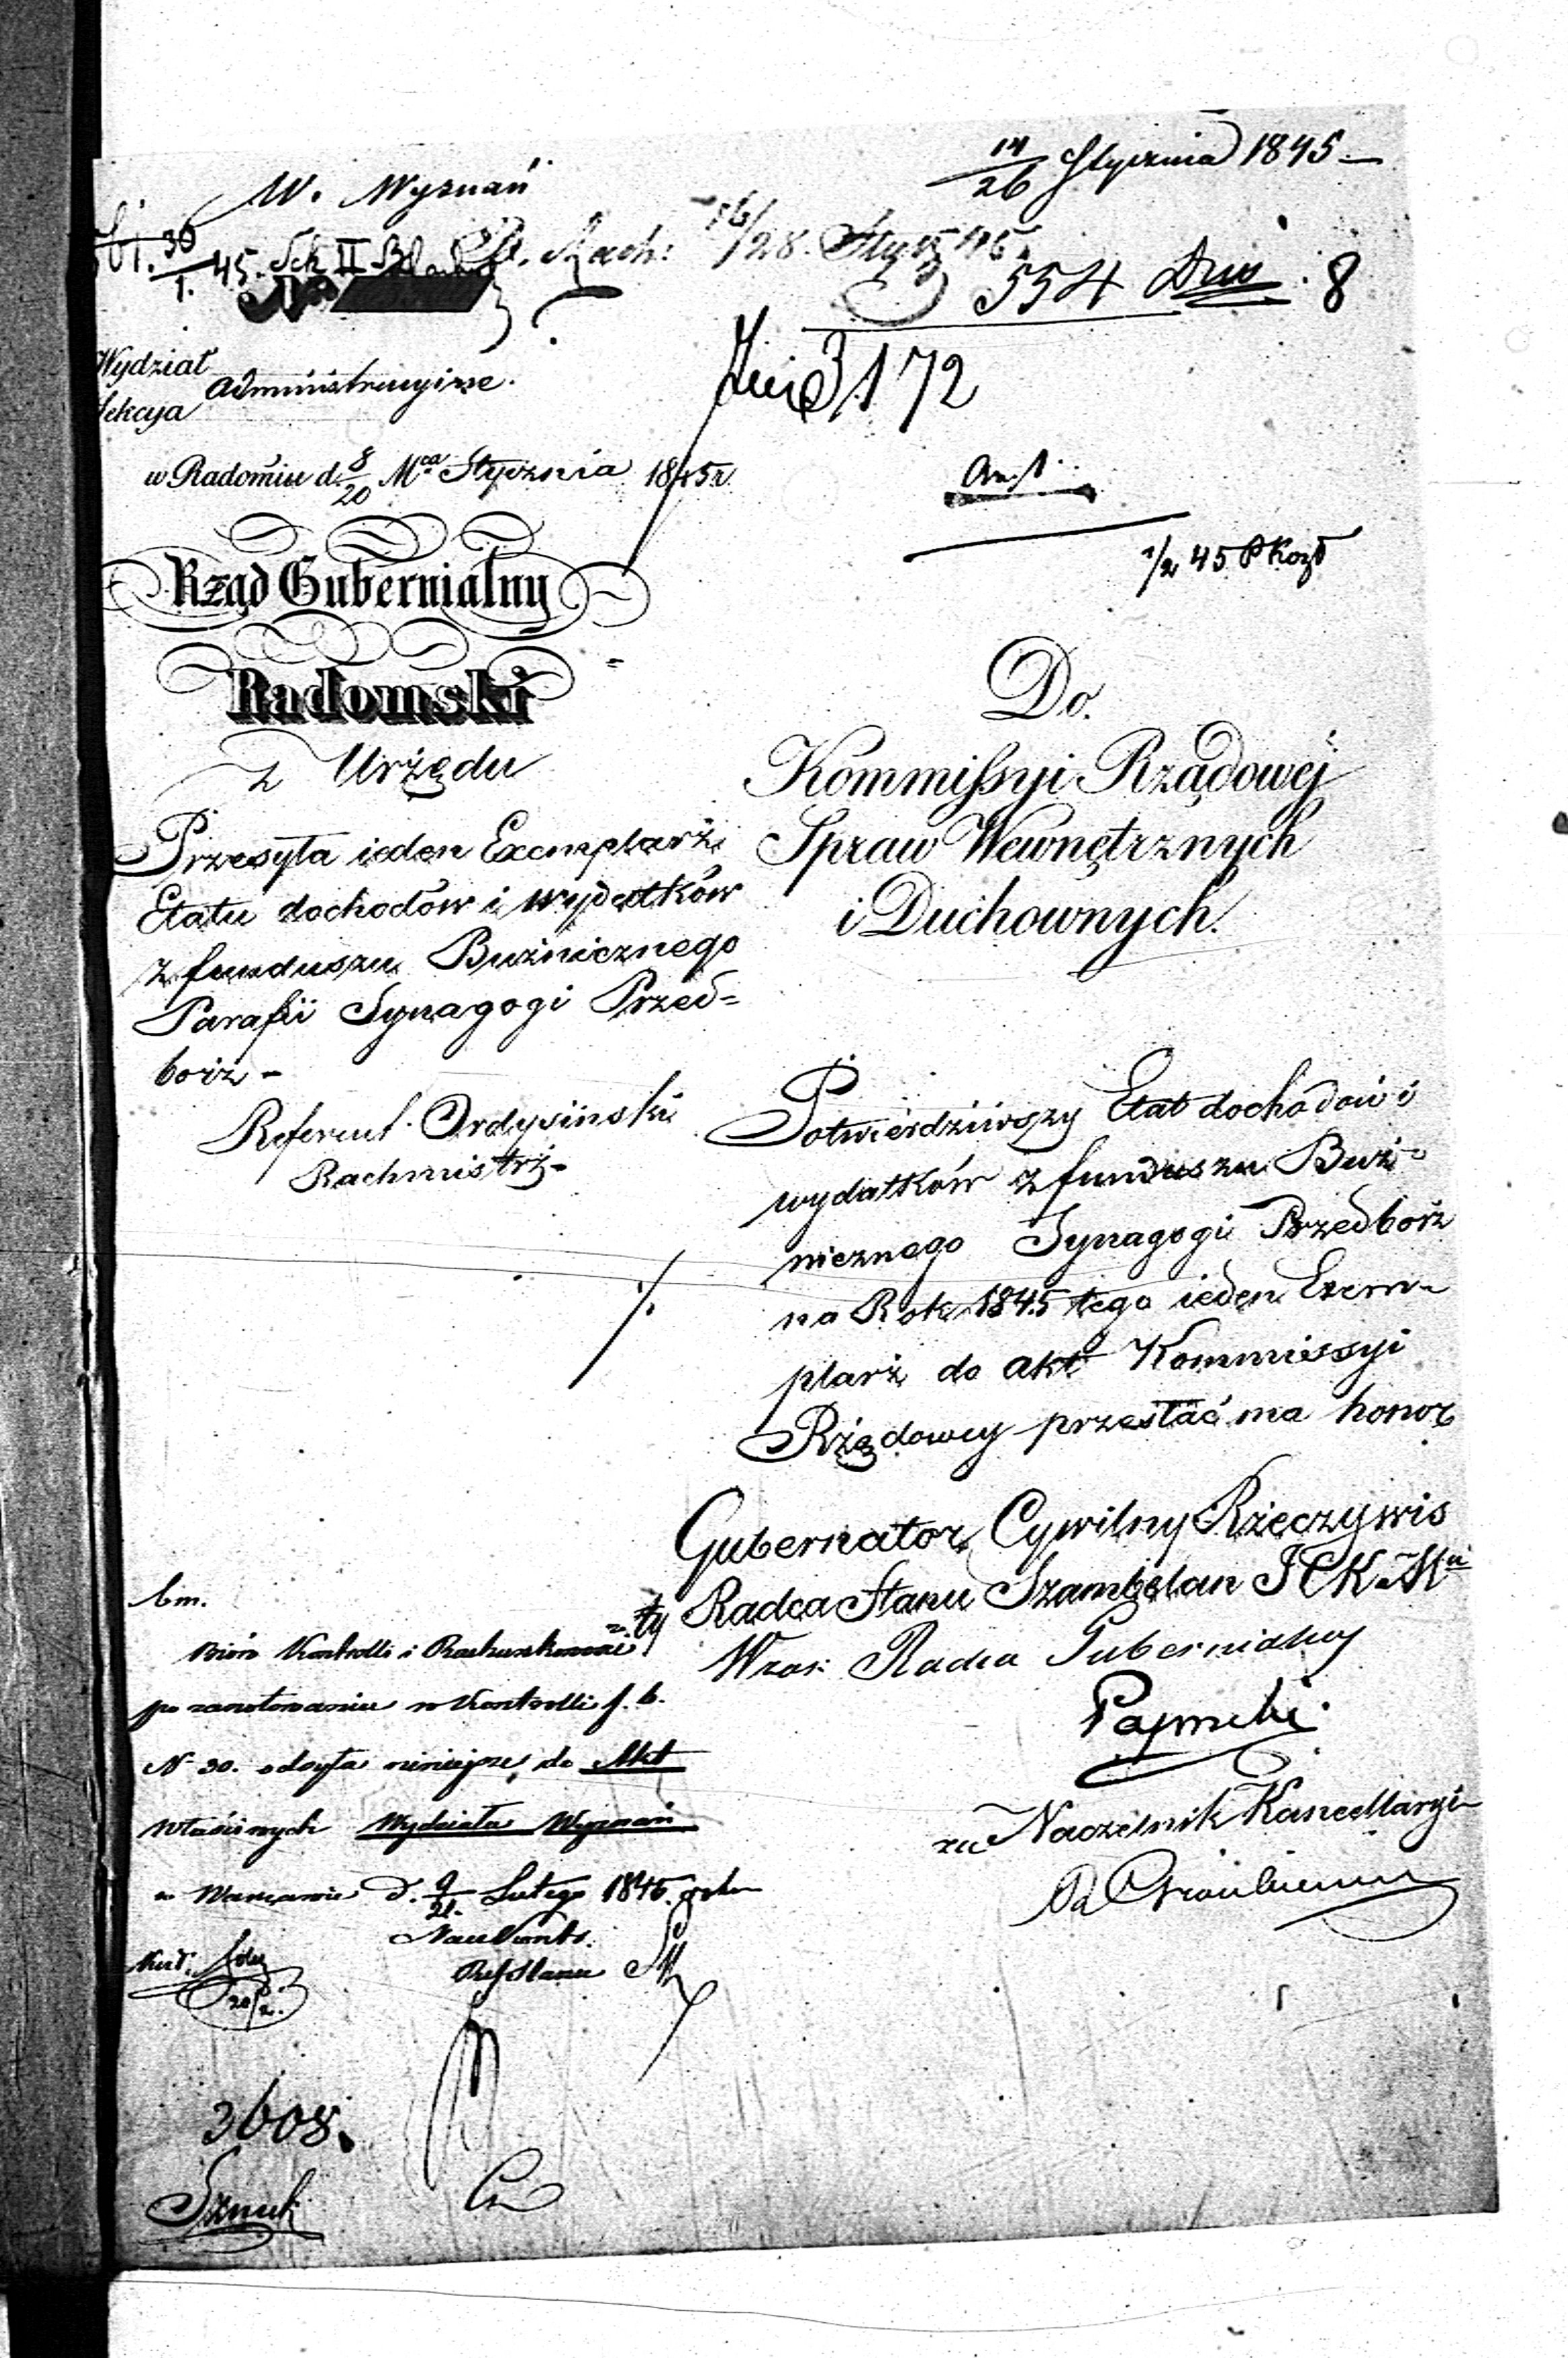 14/26 Stycznia 1845
W. Wyznań
16/28. Stycz 45.
30/1. 45. Sek II
554 8
3172
Wydział
Sekcyja
Administracyine.
w Radomiu d. 8/20 Mca Stycznia 1845 r.
1/2 45
Rząd Gubernialny
Radomski
z Urzędu
Przesyła ieden Exemplarz
Etatu dochodów i wydatków
z funduszu Buźnicznego
Parafii Synagogi Przed=
borz -
Referent
Rachmistrz -
Do
Kommissyi Rządowéj
Spraw Wewnętrznych
i Duchownych.
Potwierdziwszy Etat dochodów i
wydatków z funduszu Buź=
nicznego Synagogi Przedborz
na Rok 1845 tego ieden Exem=
plarz do akt Kommissyi
Rządowey przesłać ma honor
Gubernator Cywilny Rzeczywis
=ty Radca Stanu Szambelan
Radca Gubernialny
Naczelnik Kancellaryi
bm.
Bióro Kontrolli i Rachunkowości
po zanotowaniu w Kontrolli f. b.
N 30. odsyła niniejsze do Akt
właściwych Wydziału Wyznań
w Warszawie d. 9/21. Lutego 1845.
20/2.
3608.